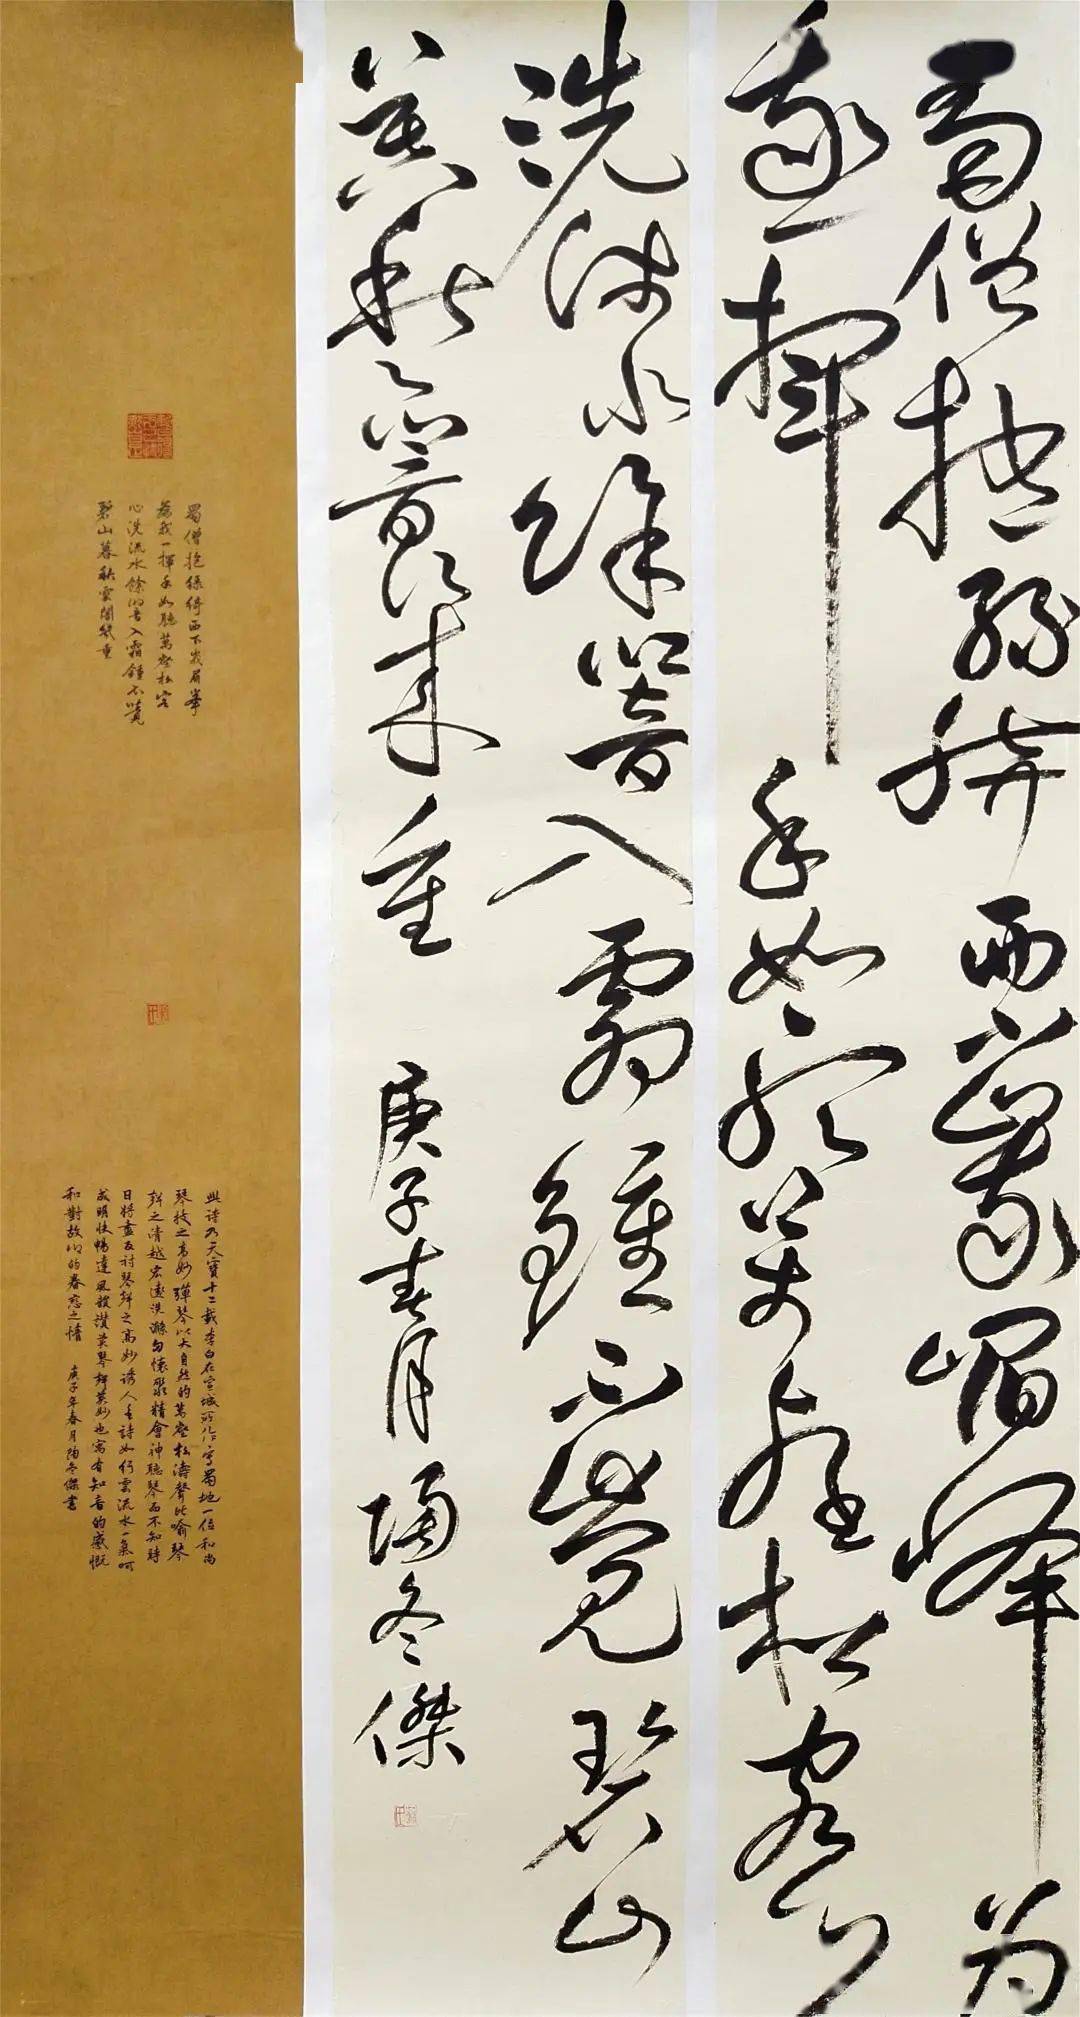 蜀僧抱綠綺西下峨嵋峰为
我一揮手如听万壑松客心
洗流水餘響入霜鐘不覺碧山
暮秋雲暗幾重
庚子春月
陶冬傑
蜀僧抱綠綺西下峨眉峯
為我一揮手如聽萬壑松客
心洗流水餘響入霜鐘不覺
碧山暮秋雲闇幾重
此詩乃天寶十二載李白在宣城所作寫蜀地一位和尚
琴技之高妙彈琴以大自然的萬壑松濤聲比喻琴
聲之清越宏遠洗滌句懷聚精會神聽琴而不知時
日將盡反衬琴聲之高妙诱人全詩如行雲流水一氣呵
成明快暢達風韻讚美琴聲美妙也寓有知音的感慨
和對故鄉的眷戀之情
庚子年春月陶冬傑書